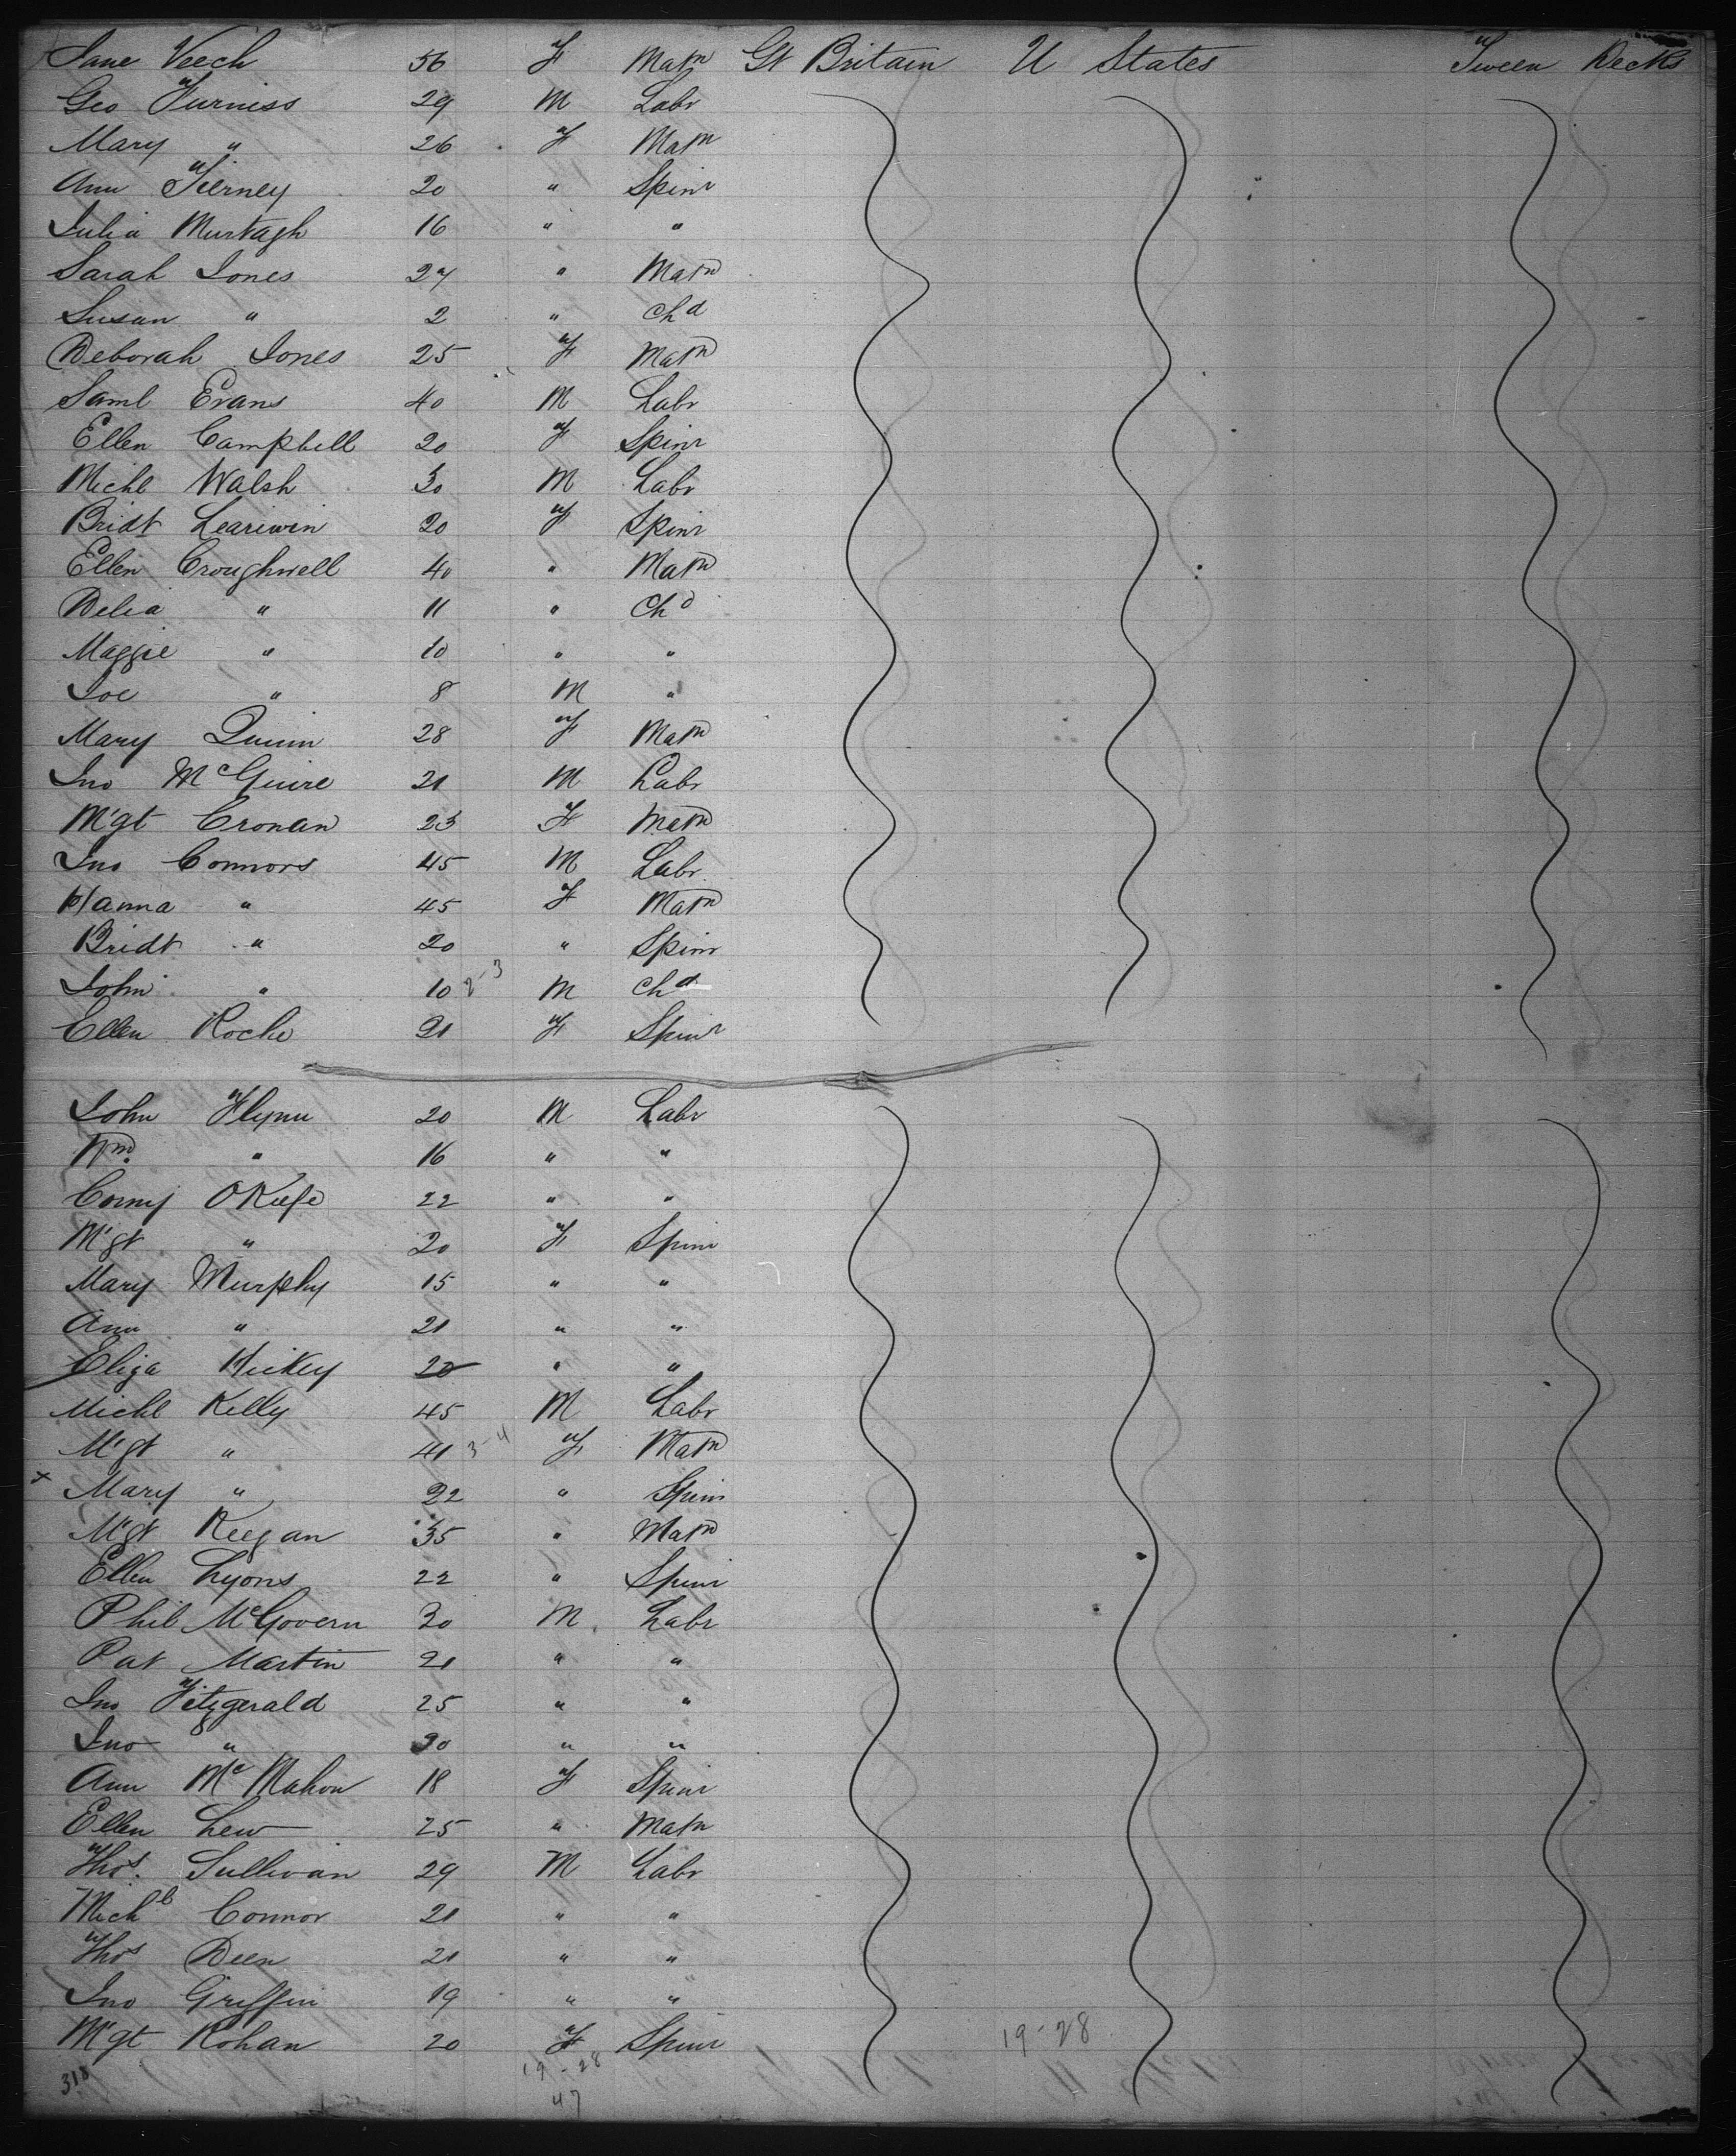 Jane Veech 56 F Matn Gt Britain U States Tween Decks
Geo Furniss 29 M Labr
Mary " 26 F Matn
Ann Tierney 20 " Spinr
Julia Murtagh 16 " "
Sarah Jones 27 " Matn
Susan " 2 " Chd
Deborah Jones 25 F Matn
Saml Evans 40 M Labr
Ellen Campbell 20 F Spinr
Michl Walsh 30 M Labr
Bridt Leariwin 20 F Spinr
Ellen Croughwell 40 " Matn
Delia " 11 " Chd
Maggie " 10 " "
Joe " 8 M "
Mary Quinn 28 F Matn
Jno McGuire 21 M Labr
M'gt Cronan 23 F Matn
Jno Connors 45 M Labr
Hanna " 45 F Matn
Bridt " 20 " Spinr
John " 10 2-3 M Chd
Ellen Roche 21 F Spinr
John Flynn 20 M Labr
Wm. " 16 " "
Corny OKeefe 22 " "
M'gt " 20 F Spinr
Mary Murphy 15 " "
Ann " 21 " "
Eliza Hickey 20 " "
Michl Kelly 45 M Labr
M'gt " 41 3-4 F Matn
x Mary " 22 " Spinr
M'gt Keegan 35 " Matn
Ellen Lyons 22 " Spinr
Phil McGovern 30 M Labr
Pat Martin 21 " "
Jno Fitzgerald 25 " "
Jno " 30 " "
Ann McMahon 18 F Spinr
Ellen Lew 25 " Matn
Thos. Sullivan 29 M Labr
Michl Connor 21 " "
Thos Deen 21 " "
Jno Griffin 19 " "
M'gt Rohan 20 F Spinr 19-28
318 19-28
47